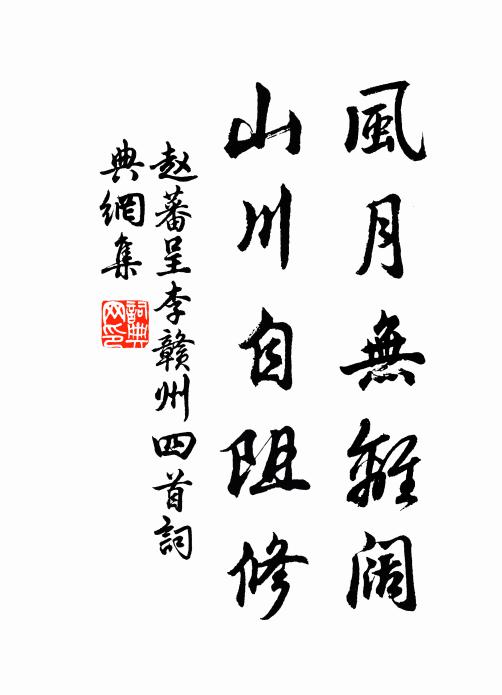 風月無離阔
山川自阻修
赵蕃呈李赣州四首詞
典網集
詞典网印